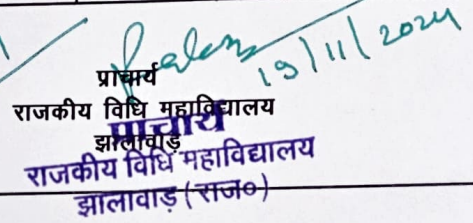 19/11/2024
प्राचार्य
राजकीय विधि महाविद्यालय
झालावाड़
प्राचार्य
राजकीय विधि महाविद्यालय
झालावाड़ (राज०)